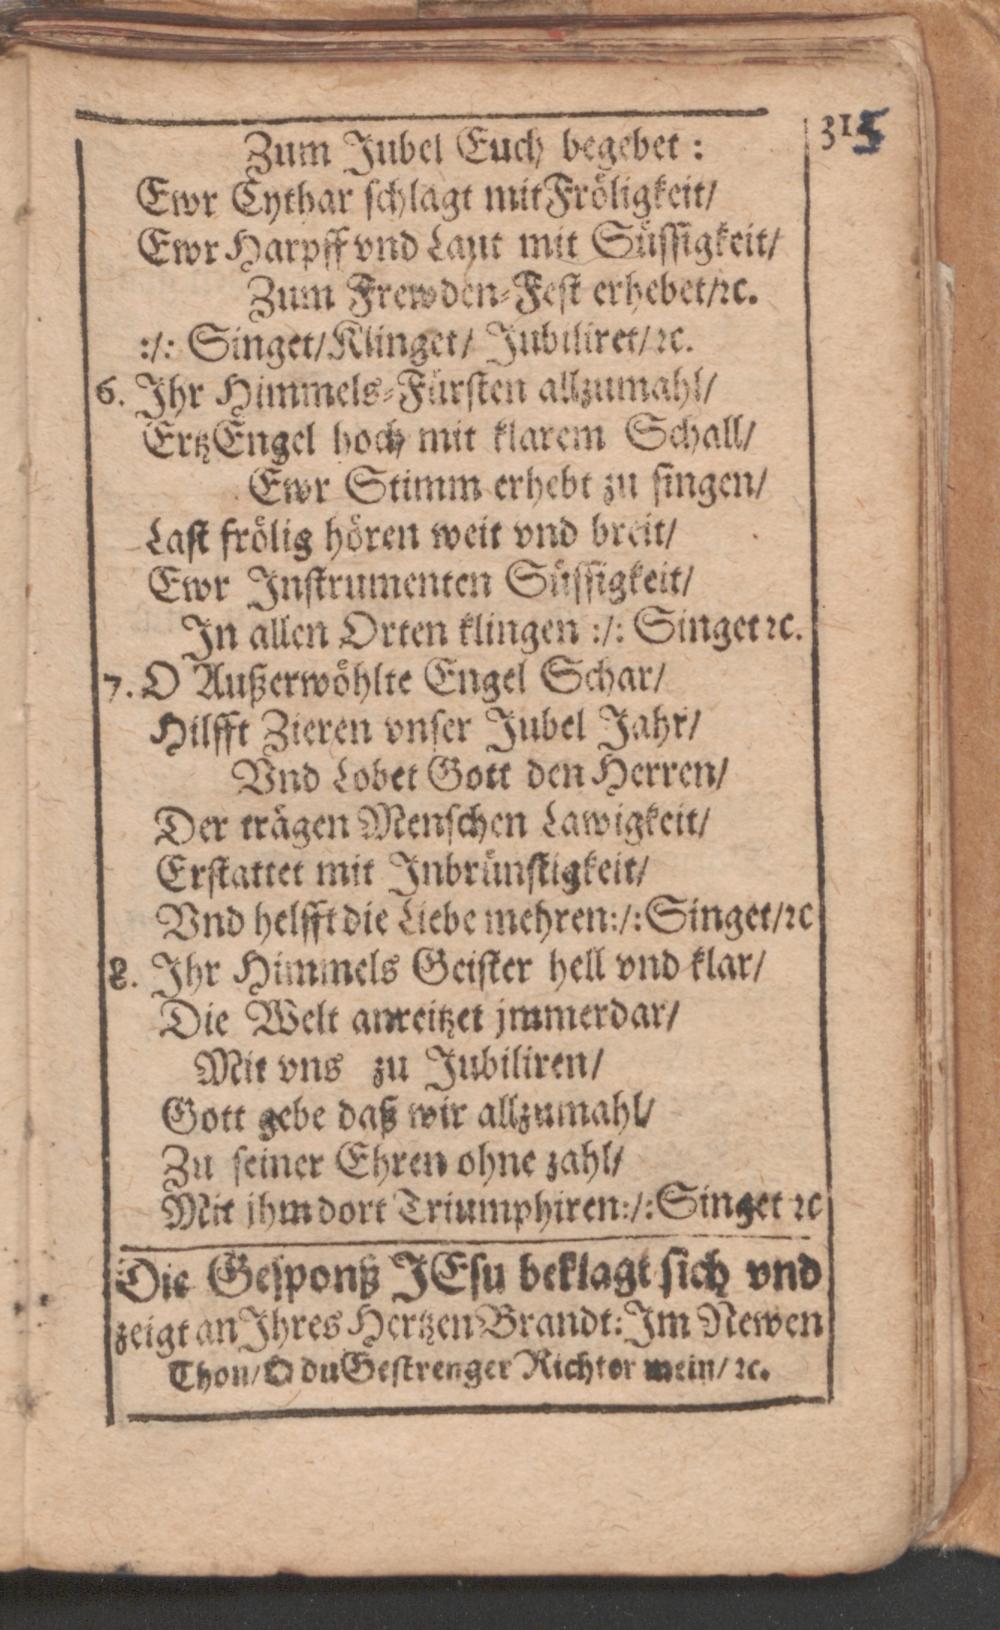 315
Zum Jubel Euch begebet :
Ewr Cythar schlagt mit Fröligkeit/
Ewr Harpff vnd Laut mit Süssigkeit/
Zum Frewden-Fest erhebet/ꝛc.
:/: Singet/Klinget/ Jubiliret/ꝛc.
6. Ihr Himmels-Fürsten allzumahl/
ErtzEngel hoch mit klarem Schall/
Ewr Stimm erhebt zu singen/
Last frölig hören weit vnd breit/
Ewr Instrumenten Süssigkeit/
In allen Orten klingen :/: Singet ꝛc.
7. O Außerwöhlte Engel Schar/
Hilfft Zieren vnser Jubel Jahr/
Vnd Lobet Gott den Herren/
Der trägen Menschen Lawigkeit/
Erstattet mit Inbrünstigkeit/
Vnd helfft die Liebe mehren:/:Singet/ꝛc
8. Ihr Himmels Geister hell vnd klar/
Die Welt anreitzet jmmerdar/
Mit vns zu Jubiliren/
Gott gebe daß wir allzumahl/
Zu seiner Ehren ohne zahl/
Mit ihm dort Triumphiren:/:Singet ꝛc
Die Gesponß JEsu beklagt sich vnd
zeigt an Ihres Hertzen Brandt: Im Newen
Thon/ O du Gestrenger Richter mein/ ꝛc.